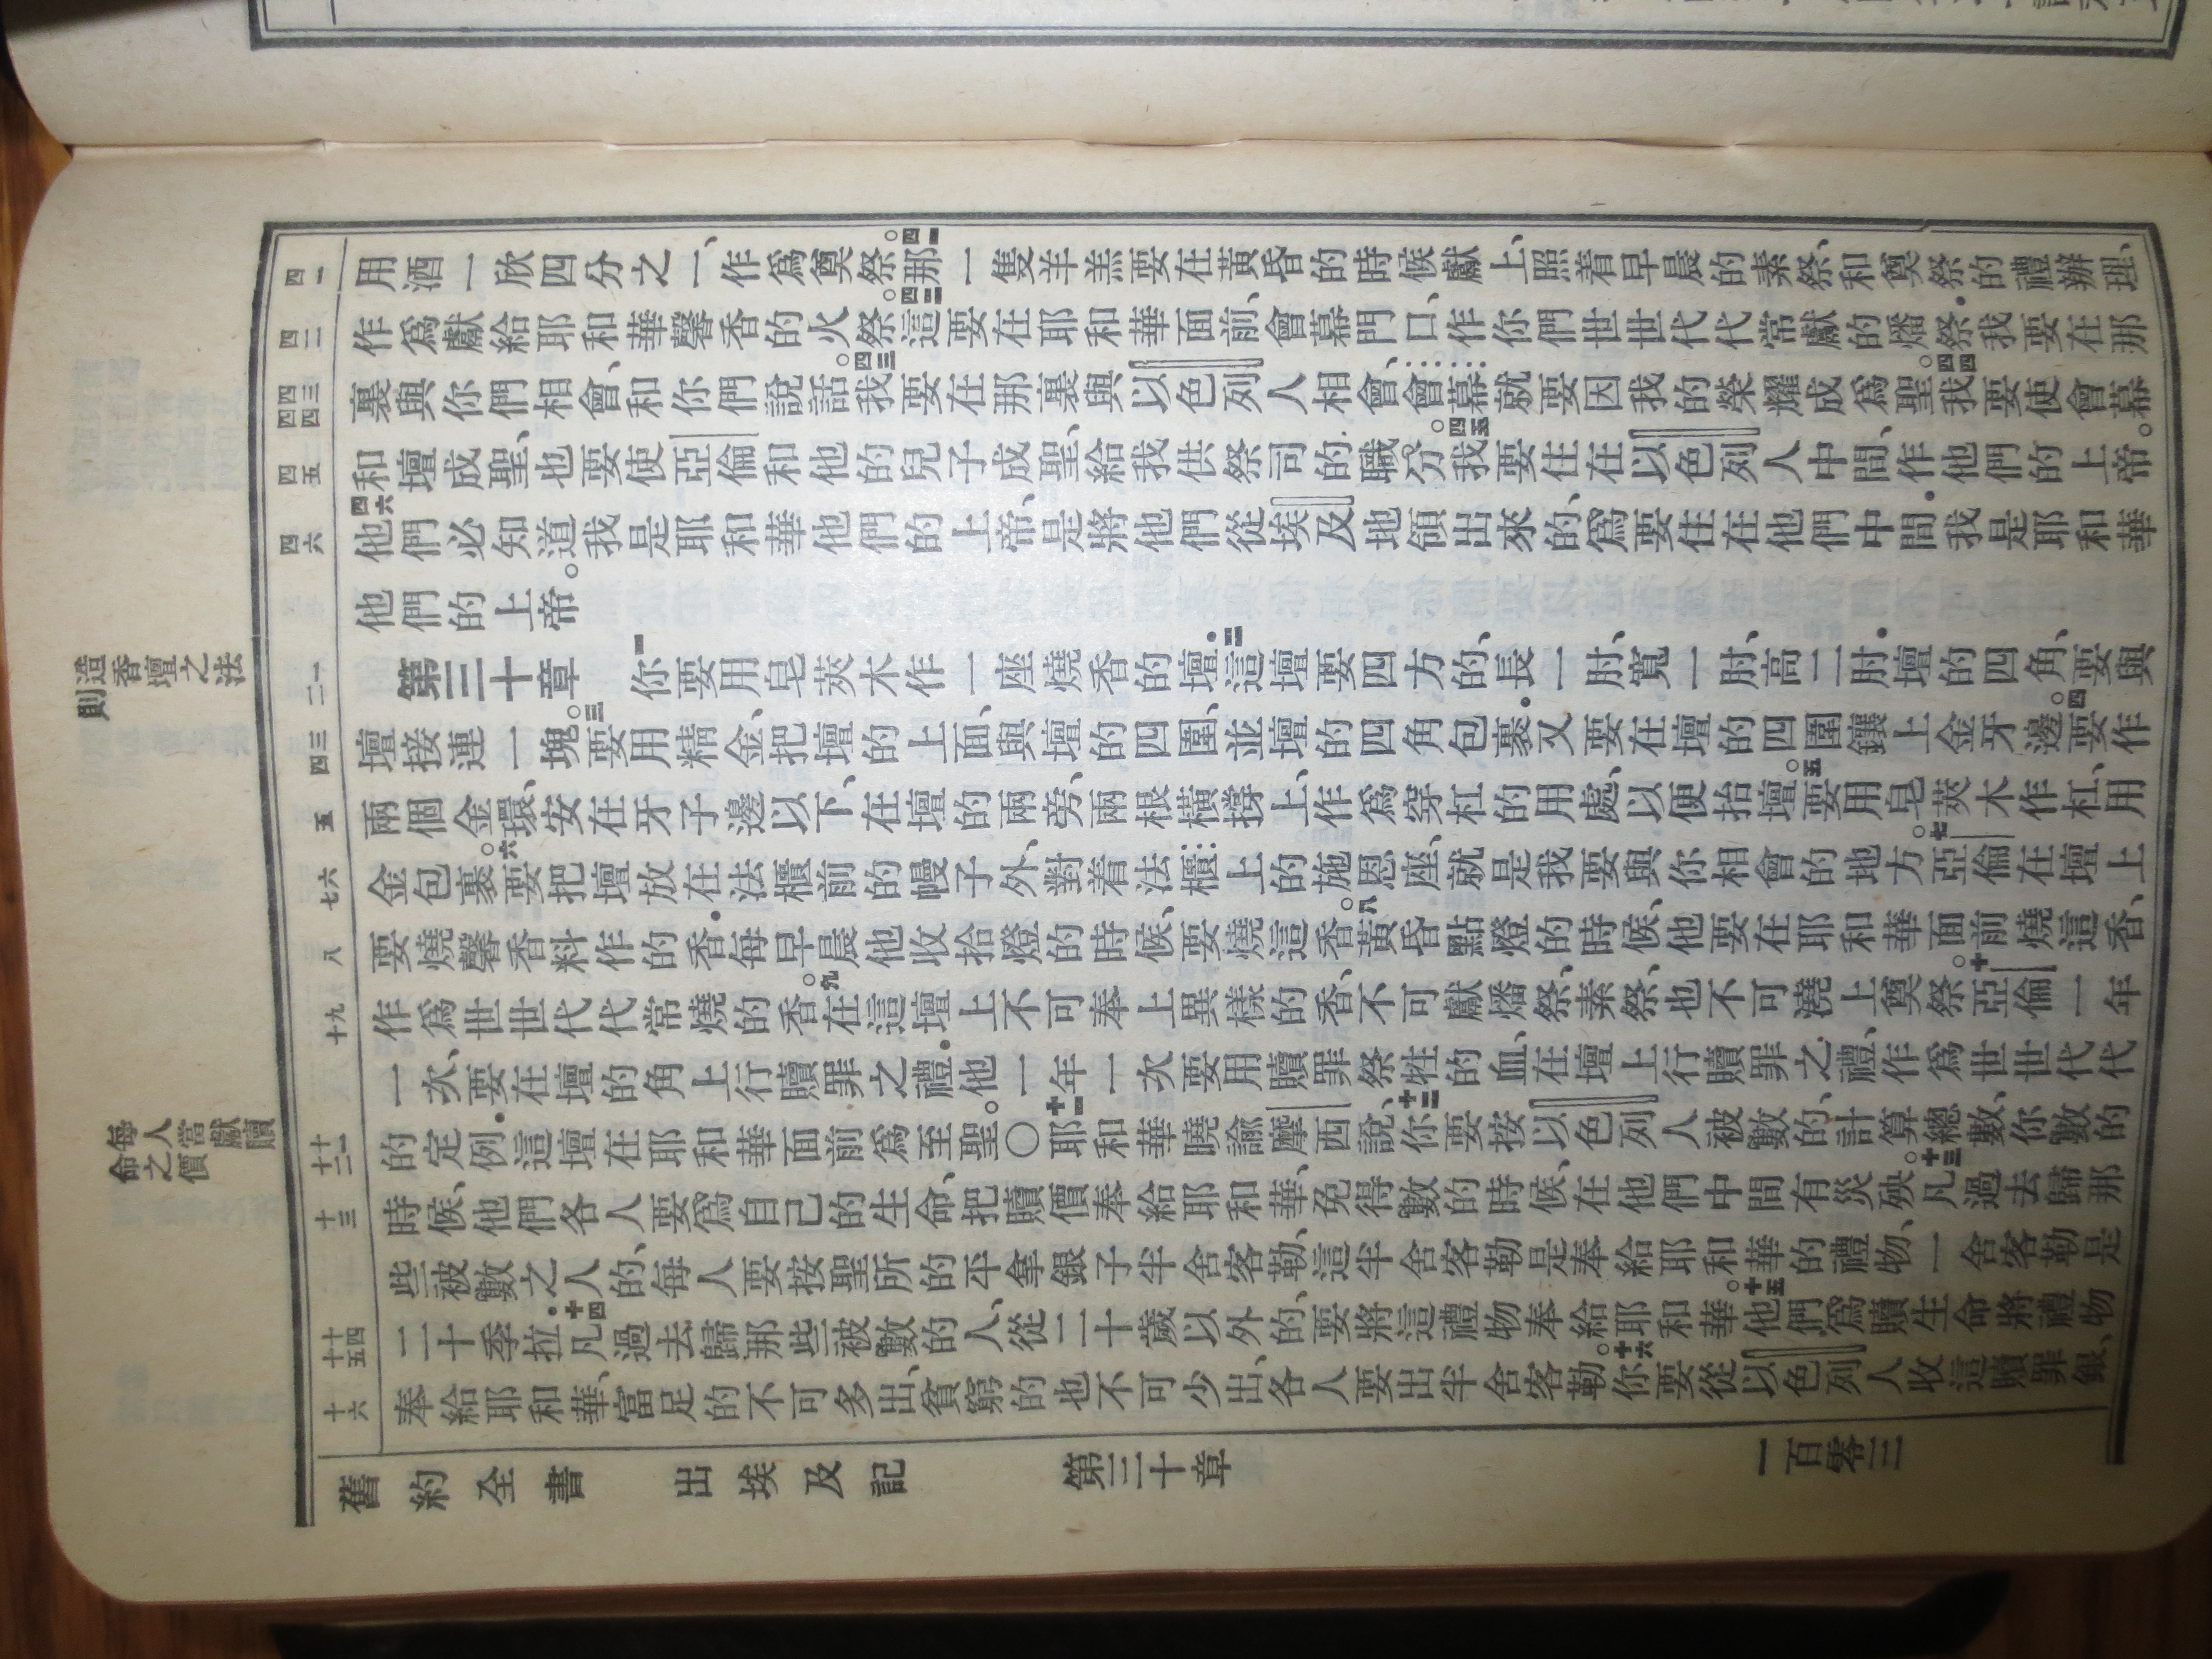 用酒一欣四分之一、作爲奠祭。四一那一隻羊羔要在黃昏的時候獻上、照着早晨的素祭、和奠祭的禮辦理、
作爲獻給耶和華馨香的火祭。四二這要在耶和華面前、會幕門口、作你們世世代代常獻的燔祭．我要在那
裏與你們相會、和你們說話。四三我要在那裏與以色列人相會、會幕就要因我的榮耀成爲聖。四四我要使會幕
和壇成聖、也要使亞倫和他的兒子成聖、給我供祭司的職分。四五我要住在以色列人中間、作他們的上帝。
四六他們必知道我是耶和華他們的上帝、是將他們從埃及地領出來的、爲要住在他們中間．我是耶和華
他們的上帝。
第三十章　一你要用皂莢木作一座燒香的壇．二這壇要四方的、長一肘、寬一肘、高二肘．壇的四角、要與
壇接連一塊。三要用精金、把壇的上面、與壇的四圍、並壇的四角包裹．又要在壇的四圍鑲上金牙邊。四要作
兩個金環、安在牙子邊以下、在壇的兩旁、兩根橫撐上、作爲穿杠的用處、以便抬壇。五要用皂莢木作杠、用
金包裹。六要把壇放在法櫃前的幔子外、對着法櫃上的施恩座、就是我要與你相會的地方。七亞倫在壇上
要燒馨香料作的香．每早晨他收拾燈的時候、要燒這香。八黃昏點燈的時候、他要在耶和華面前燒這香、
作爲世世代代常燒的香。九在這壇上不可奉上異樣的香、不可獻燔祭、素祭、也不可澆上奠祭。十亞倫一年
一次、要在壇的角上行贖罪之禮．他一年一次要用贖罪祭牲的血、在壇上行贖罪之禮、作爲世世代代
的定例．這壇在耶和華面前爲至聖。〇十一耶和華曉諭摩西說、十二你要按以色列人被數的、計算總數、你數的
時候、他們各人要爲自己的生命、把贖價奉給耶和華、免得數的時候、在他們中間有災殃。十三凡過去歸那
些被數之人的、每人要按聖所的平、拿銀子半舍客勒、這半舍客勒是奉給耶和華的禮物、一舍客勒是
二十季拉．十四凡過去歸那些被數的人、從二十歲以外的、要將這禮物奉給耶和華。十五他們爲贖生命將禮物
奉給耶和華、富足的不可多出、貧窮的也不可少出、各人要出半舍客勒。十六你要從以色列人收這贖罪銀、
舊約全書　出埃及記　第三十章　一百零三
四一
四二
四三
四四
四五
四六
一
二
三
四
五
六
七
八
九
十
十一
十二
十三
十四
十五
十六
造香壇之法
則
每人當獻贖
命之價